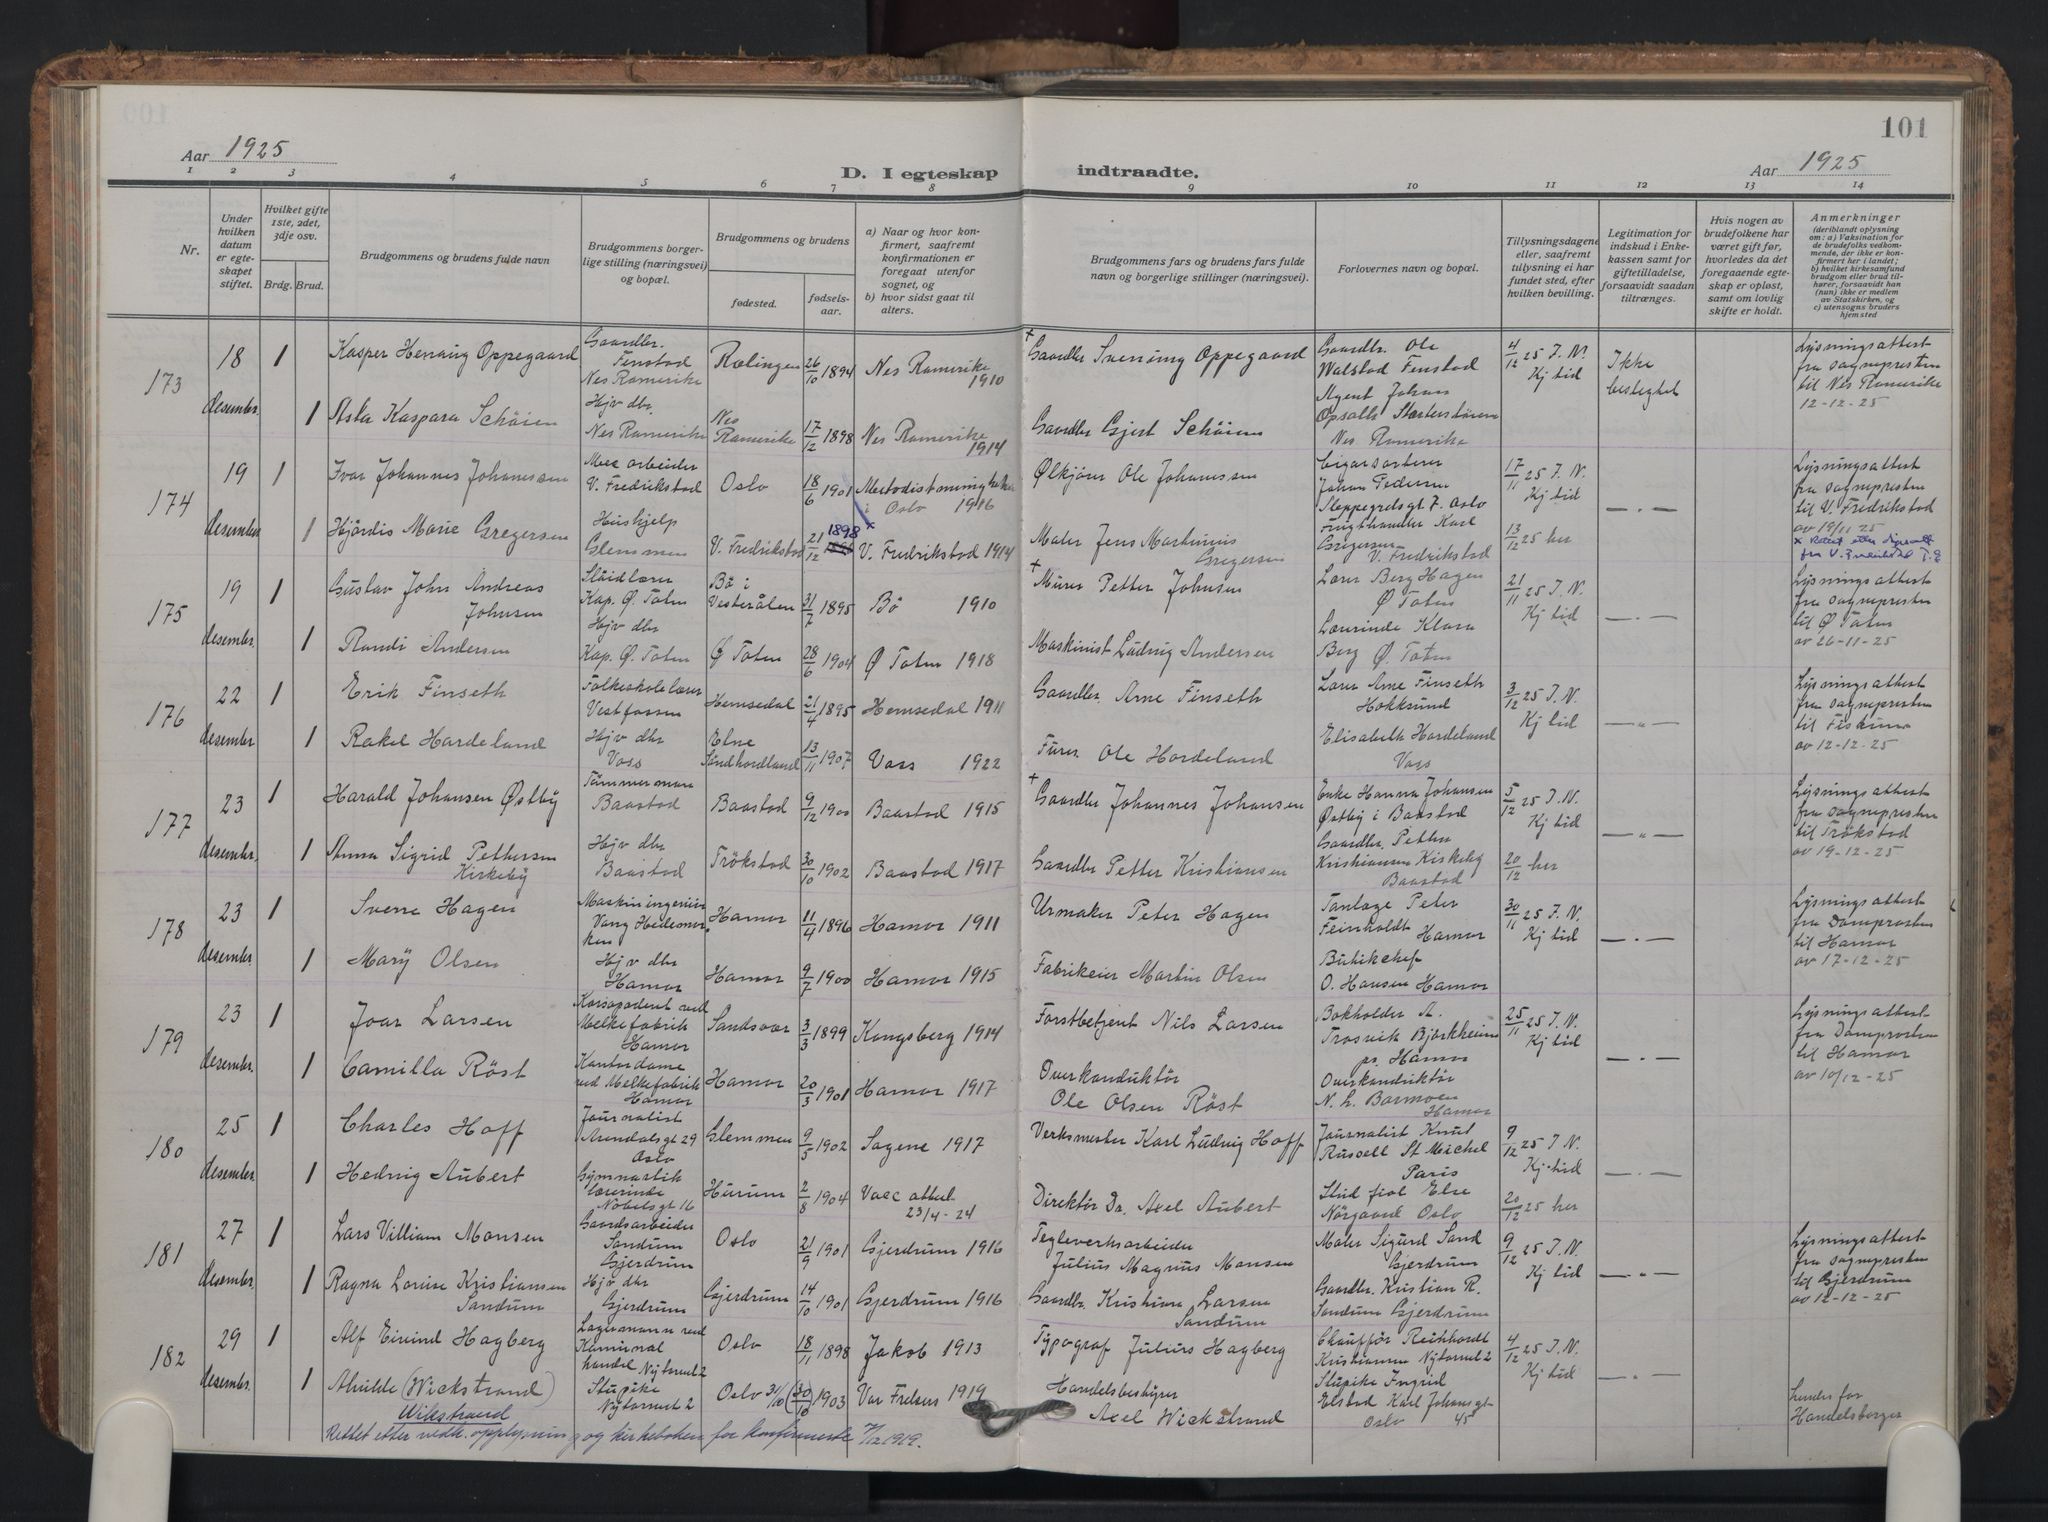 101
Aar 1925
D. I egteskap indtraadte.
Aar 1925
1 2 3 4 5 6 7 8 9 10 11 12 13 14
Nr.
Under hvilken datum er egteskapet stiftet.
Hvilket gifte 1ste, 2det, 3dje osv.
Brdg. Brud.
Brudgommens og brudens fulde navn
Brudgommens borgerlige stilling (næringsvei) og bopæl.
Brudgommens og brudens
fødested.
fødselsaar.
a) Naar og hvor konfirmert, saafremt konfirmationen er foregaat utenfor sognet, og
b) hvor sidst gaat til alters.
Brudgommens fars og brudens fars fulde navn og borgerlige stillinger (næringsvei).
Forlovernes navn og bopæl.
Tillysningsdagene eller, saafremt tillysning ei har fundet sted, efter hvilken bevilling.
Legitimation for indskud i Enkekassen samt for giftetilladelse, forsaavidt saadan tiltrænges.
Hvis nogen av brudefolkene har været gift før, hvorledes da det foregaaende egteskap er opløst, samt om lovlig skifte er holdt.
Anmerkninger (deriblandt oplysning om: a) Vaksination for de brudefolks vedkommende, der ikke er konfirmert her i landet; b) hvilket kirkesamfund brudgom eller brud tilhører, forsaavidt han (hun) ikke er medlem av Statskirken, og c) utensogns bruders hjemsted
173 18 desember. 1 Kasper Henning Oppegaard Gaardbr. Finstad Nes Romerike Rælingen 26/10 1894 Nes Romerike 1910 + Gaardbr Svenning Oppegaard Gaardbr. Ole Walstad Finstad 4/12 25 I. N. Kj tid Ikke beslegtet Lysningsattest fra sognepresten til Nes Romerike 12-12-25
1 Asta Kaspara Schöien Hjv dtr. Nes Romerike Nes Romerike 17/12 1898 Nes Romerike 1914 Gaardbr Gjert Schöien Agent Johan Opsalt Nes Romerike
174 19 desember 1 Ivar Johannes Johannessen Mek arbeider V. Fredrikstad Oslo 18/6 1901 Metodistmenigheten i Oslo 1916 Ølkjörer Ole Johannessen Cigarsorterer Johan Pedersen Steppegrdsgt 7. Oslo 17/11 25 I. N. Kj tid — " — Lysningsattest fra sognepresten til V. Fredrikstad av 19/11 25
1 Hjördis Marie Gregersen Hushjelp Glemmen V. Fredrikstad 21/12 1898 x V. Fredrikstad 1914 Maler Jens Marthinius Gregersen Frugthandler Karl Gregersen V. Fredrikstad 13/12 25 her
x Rettet efter dåpsatt fra V. Fredrikstad
175 19 desember. 1 Gustav John Andreas Johnsen Slöidlærer Kap. Ø. Toten Bö i Vesterålen 31/7 1895 Bö 1910 + Murer Petter Johnsen Lærer Berg Hagen Ø Toten 21/11 25 I. N. Kj tid — " — Lysningsattest fra sognepresten til Ø Toten av 26-11-25
1 Randi Andersen Hjv dtr Kap. Ø. Toten Ø Toten 28/6 1904 Ø Toten 1918 Maskinist Ludvig Andersen Lærerinde Klara Berg Ø. Toten
176 22 desember 1 Erik Finseth Folkeskolelærer Vestfossen Hemsedal 21/4 1895 Hemsedal 1911 Gaardbr. Arne Finseth Lærer Arne Finseth Hokksund 3/12 25 I. N. Kj tid — " — Lysningsattest fra sognepresten til Fiskum av 12-12-25
1 Rakel Hardeland Hjv dtr Voss Elne Söndhordland 13/11 1907 Voss 1922 Ole Hordeland Elisabeth Hordeland Voss
177 23 desember. 1 Harald Johansen Østby Tömmermann Baastad Baastad 9/12 1900 Baastad 1915 + Gaardbr Johannes Johansen Enke Hanna Johansen Østby i Baastad 5/12 25 I. N. Kj tid — " — Lysningsattest fra sognepresten til Trökstad av 19-12-25
1 Anna Sigrid Pettersen Kirkeby Hjv dtr Baastad Trökstad 30/10 1902 Baastad 1917 Gaardbr Petter Kristiansen Gaardbr. Petter Kristiansen Kirkeby Baastad 20/12 her
178 23 desember. 1 Sverre Hagen Maskiningeniör Vang Hedemarken Hamar 11/4 1896 Hamar 1911 Urmaker Peter Hagen Tanlæge Peter Feinholdt Hamar 30/11 25 I. N. Kj tid — " — Lysningsattest fra Domprosten til Hamar av 17-12-25
1 Mary Olsen Hjv dtr Hamar Hamar 9/7 1900 Hamar 1915 Fabrikeier Martin Olsen Butikchef O. Hansen Hamar
179 23 desember. 1 Joar Larsen ved Melkefabrik Hamar Sandsvær 3/3 1899 Kongsberg 1914 Forstbetjent Nils Larsen Bokholder A. Trosvik Björkheim pr. Hamar 25/11 25 I. N. Kj tid — " — Lysningsattest fra Domprosten til Hamar av 10/12-25
1 Camilla Röst Kontordame ved Melkefabrik Hamar Hamar 20/3 1901 Hamar 1917 Overkonduktör Ole Olsen Röst Overkonduktör N. L. Barmoen Hamar
180 25 desember. 1 Charles Hoff Journalist Arendalsgt 29 Oslo Glemmen 9/5 1902 Sagene 1917 Verksmester Karl Ludvig Hoff Journalist Knut Russell St Michel Paris 9/12 25 I. N. Kj. tid — " —
1 Hedvig Aubert Gymnastik lærerinde Nobelsgt 16 Hurum 2/8 1904 Vacc attest 23/4-24 Direktör Dr. Axel Aubert Stud fiol Else Nörgaard Oslo 20/12 25 her
181 27 desember. 1 Lars Villiam Monsen Gaardsarbeider Sandum Gjerdrum Oslo 21/9 1901 Gjerdrum 1916 Tegleverksarbeider Julius Magnus Monsen Maler Sigurd Sand Gjerdrum 9/12 25 I. N. Kj tid — " — Lysningsattest fra sognepresten til Gjerdrum av 12-12-25
1 Ragna Lovise Kristiansen Sandum Hjv dtr Gjerdrum Gjerdrum 14/10 1901 Gjerdrum 1916 Gaardbr. Kristian Larsen Sandum Gaardbr. Kristian R. Sandum Gjerdrum
182 29 desember. 1 Alf Eivind Hagberg Lagermann ved Kommunal handel Nytorvet 2 Oslo 18/11 1898 Jakob 1913 Typograf Julius Hagberg Chaufför Reinhardt Kristiansen Nytorvet 2 4/12 25 I. N. Kj tid — " —
1 Ahilde (Wickstrand) Wikstrand Stupike Nytorvet 2 Oslo 31/10 (30/10) 1903 Vor Frelsers 1919 Handelsbestyrer Axel Wickstrand Stupike Ingrid Elstad Karl Johansgt 45 Oslo
Rettet etter vedk. opplysning og kirkeboken for konfirmerte 7/12 1919.